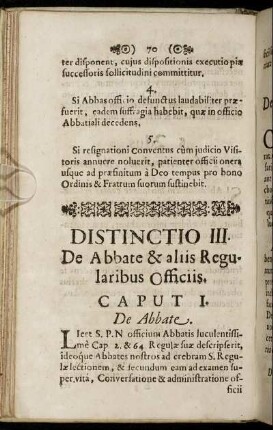 70
ter disponent, cujus dispositionis executio piæ
successoris sollicitudini committitur.
4.
Si Abbas offi. in defunctus laudabiliter præ-
fuerit, eadem suffragia habebit, quæ in officio
Abbatiali decedens.
5.
Si resignationi Conventus cùm judicio Visi-
toris annuere noluerit, patienter officii onera
usque ad præfinitum à Deo tempus pro bono
Ordinis & Fratrum suorum sustinebit.
DISTINCTIO III.
De Abbate & aliis Regu-
laribus Officiis.
CAPUT I.
De Abbate.
Licet S. P. N officium Abbatis luculentissi-
mè Cap. 2. & 64 Regulæ suæ descripserit,
ideoque Abbates nostros ad crebram S. Regu-
læ lectionem, & secundum eam ad examen su-
per, vitâ, Conversatione & administratione of-
ficii